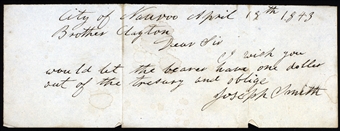 City of Nauvoo April 18th 1843
Brother Clayton
Dear Sir
I wish you
would let the bearer have one dollar
out of the tresury and oblige
Joseph Smith